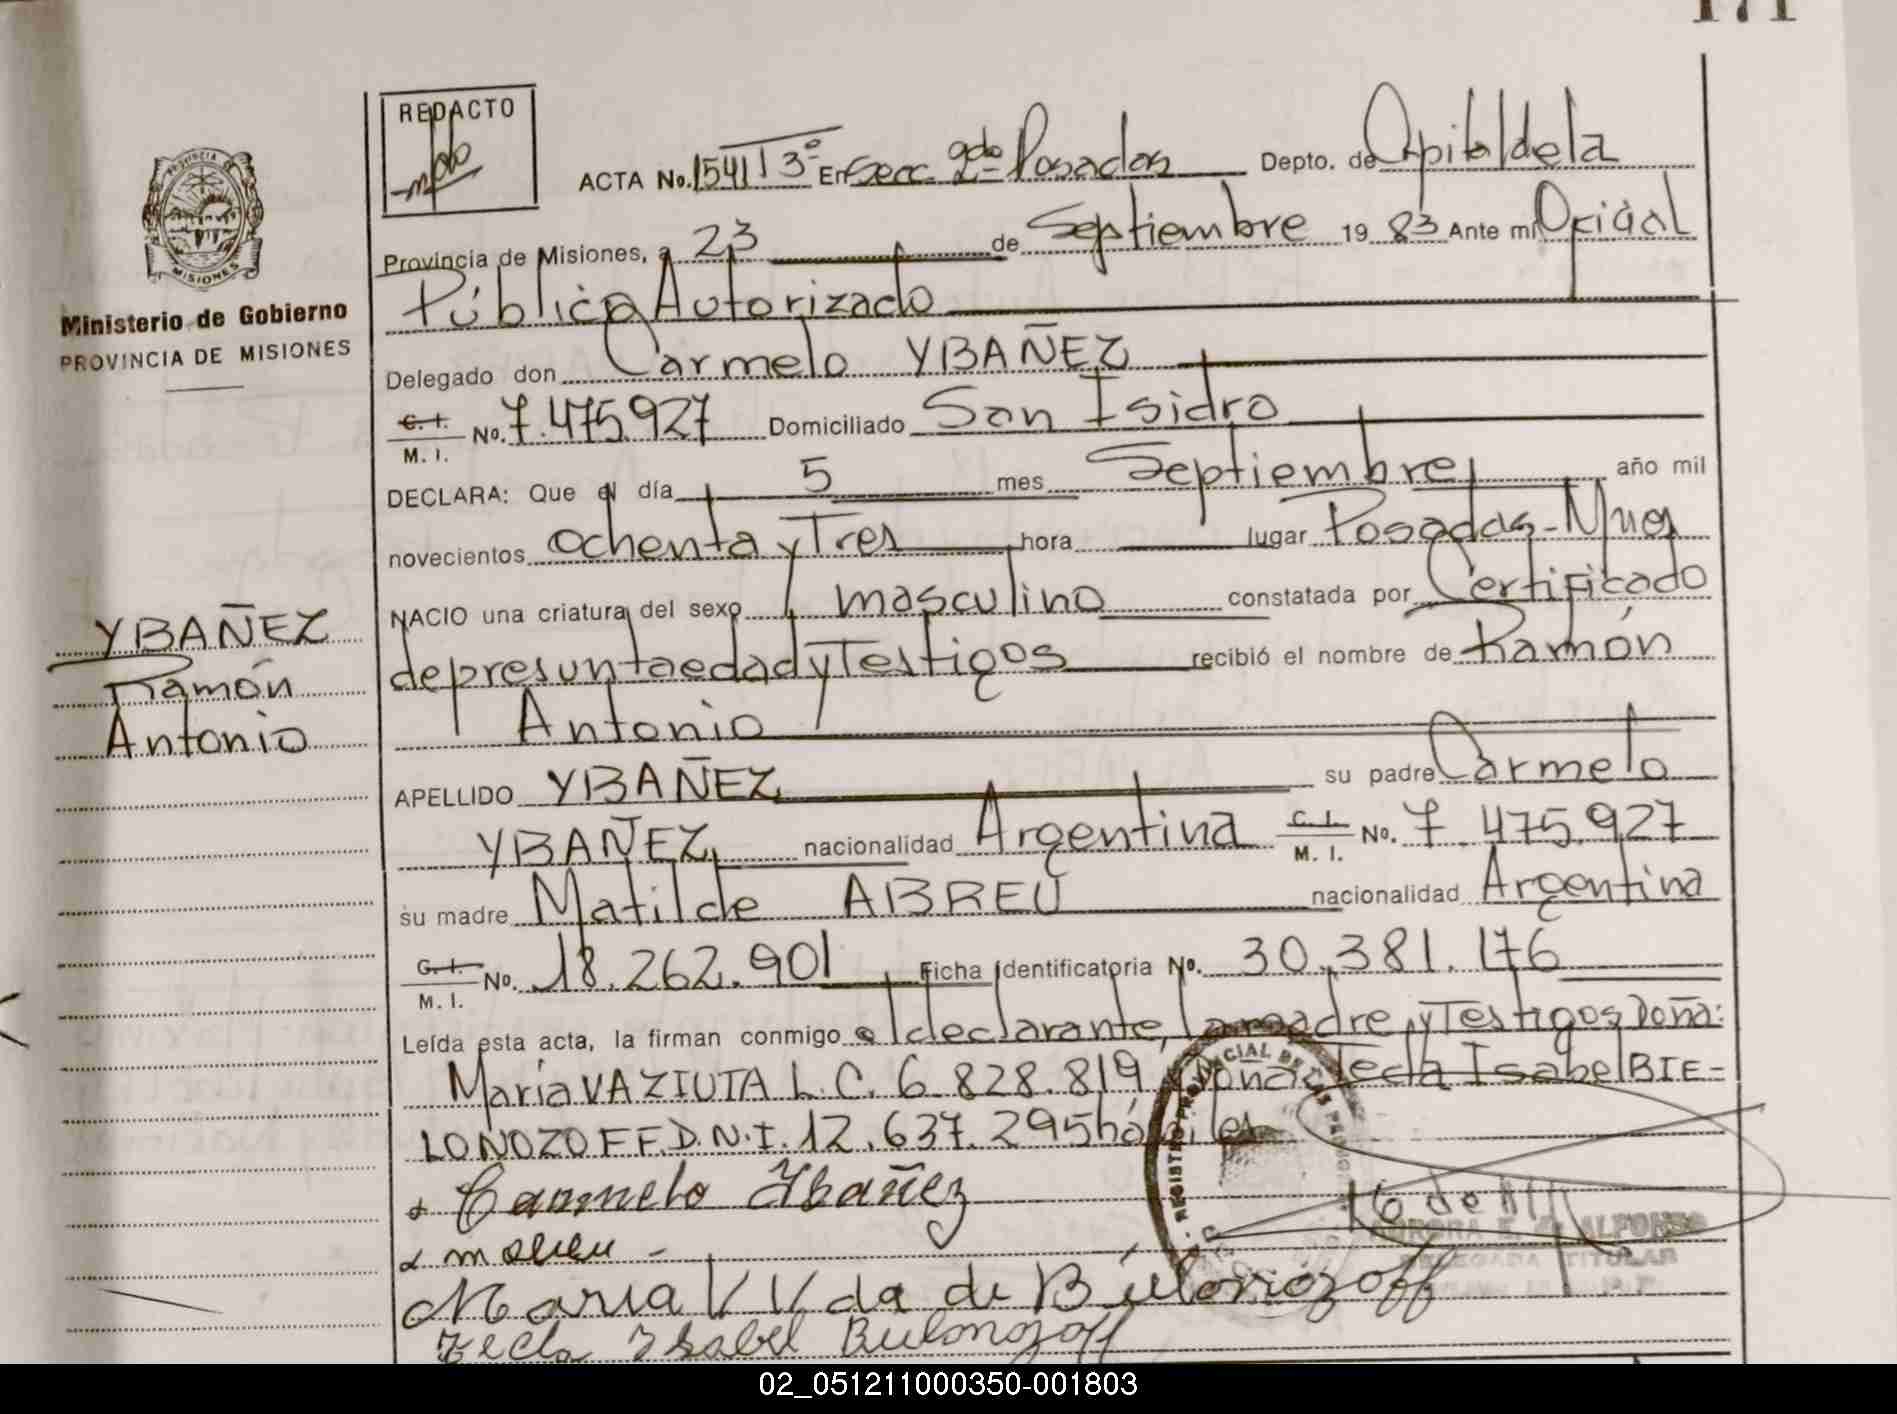 171
REDACTO
ACTA No. 1541 T 3º En Secc. 2da Posadas Depto. de Capital de la
Provincia de Misiones, a 23 de Septiembre 19 83 Ante mi Oficial
Público Autorizado
Delegado don Carmelo YBAÑEZ
C. I. M. I. No. 7.475.927 Domiciliado San Isidro
DECLARA: Que el día 5 mes Septiembre año mil
novecientos ochenta y Tres hora lugar Posadas - Mnes
NACIO una criatura del sexo masculino constatada por Certificado
de presunta edad y Testigos recibió el nombre de Ramón
Antonio
APELLIDO YBAÑEZ su padre Carmelo
YBAÑEZ nacionalidad Argentina C. I. M. I. No. 7.475.927
su madre Matilde ABREU nacionalidad Argentina
C. I. M. I. No. 18.262.901 Ficha Identificatoria No. 30.381.176
Leída esta acta, la firman conmigo el declarante, la madre y Testigos Doña:
María VAZIUTA L.C. 6.828.819 y Doña Tecla Isabel BIE-
LONOZOFF D.N.I. 12.637.295 hábiles
Carmelo Ybañez
María V Vda de Bielonozoff
Tecla Isabel Bulonozoff
PROVINCIA DE
MISIONES
Ministerio de Gobierno
PROVINCIA DE MISIONES
YBAÑEZ
Ramón
Antonio
REGISTRO PROVINCIAL DE LAS
AURORA E. ALFONSO
DELEGADA TITULAR
02_051211000350-001803